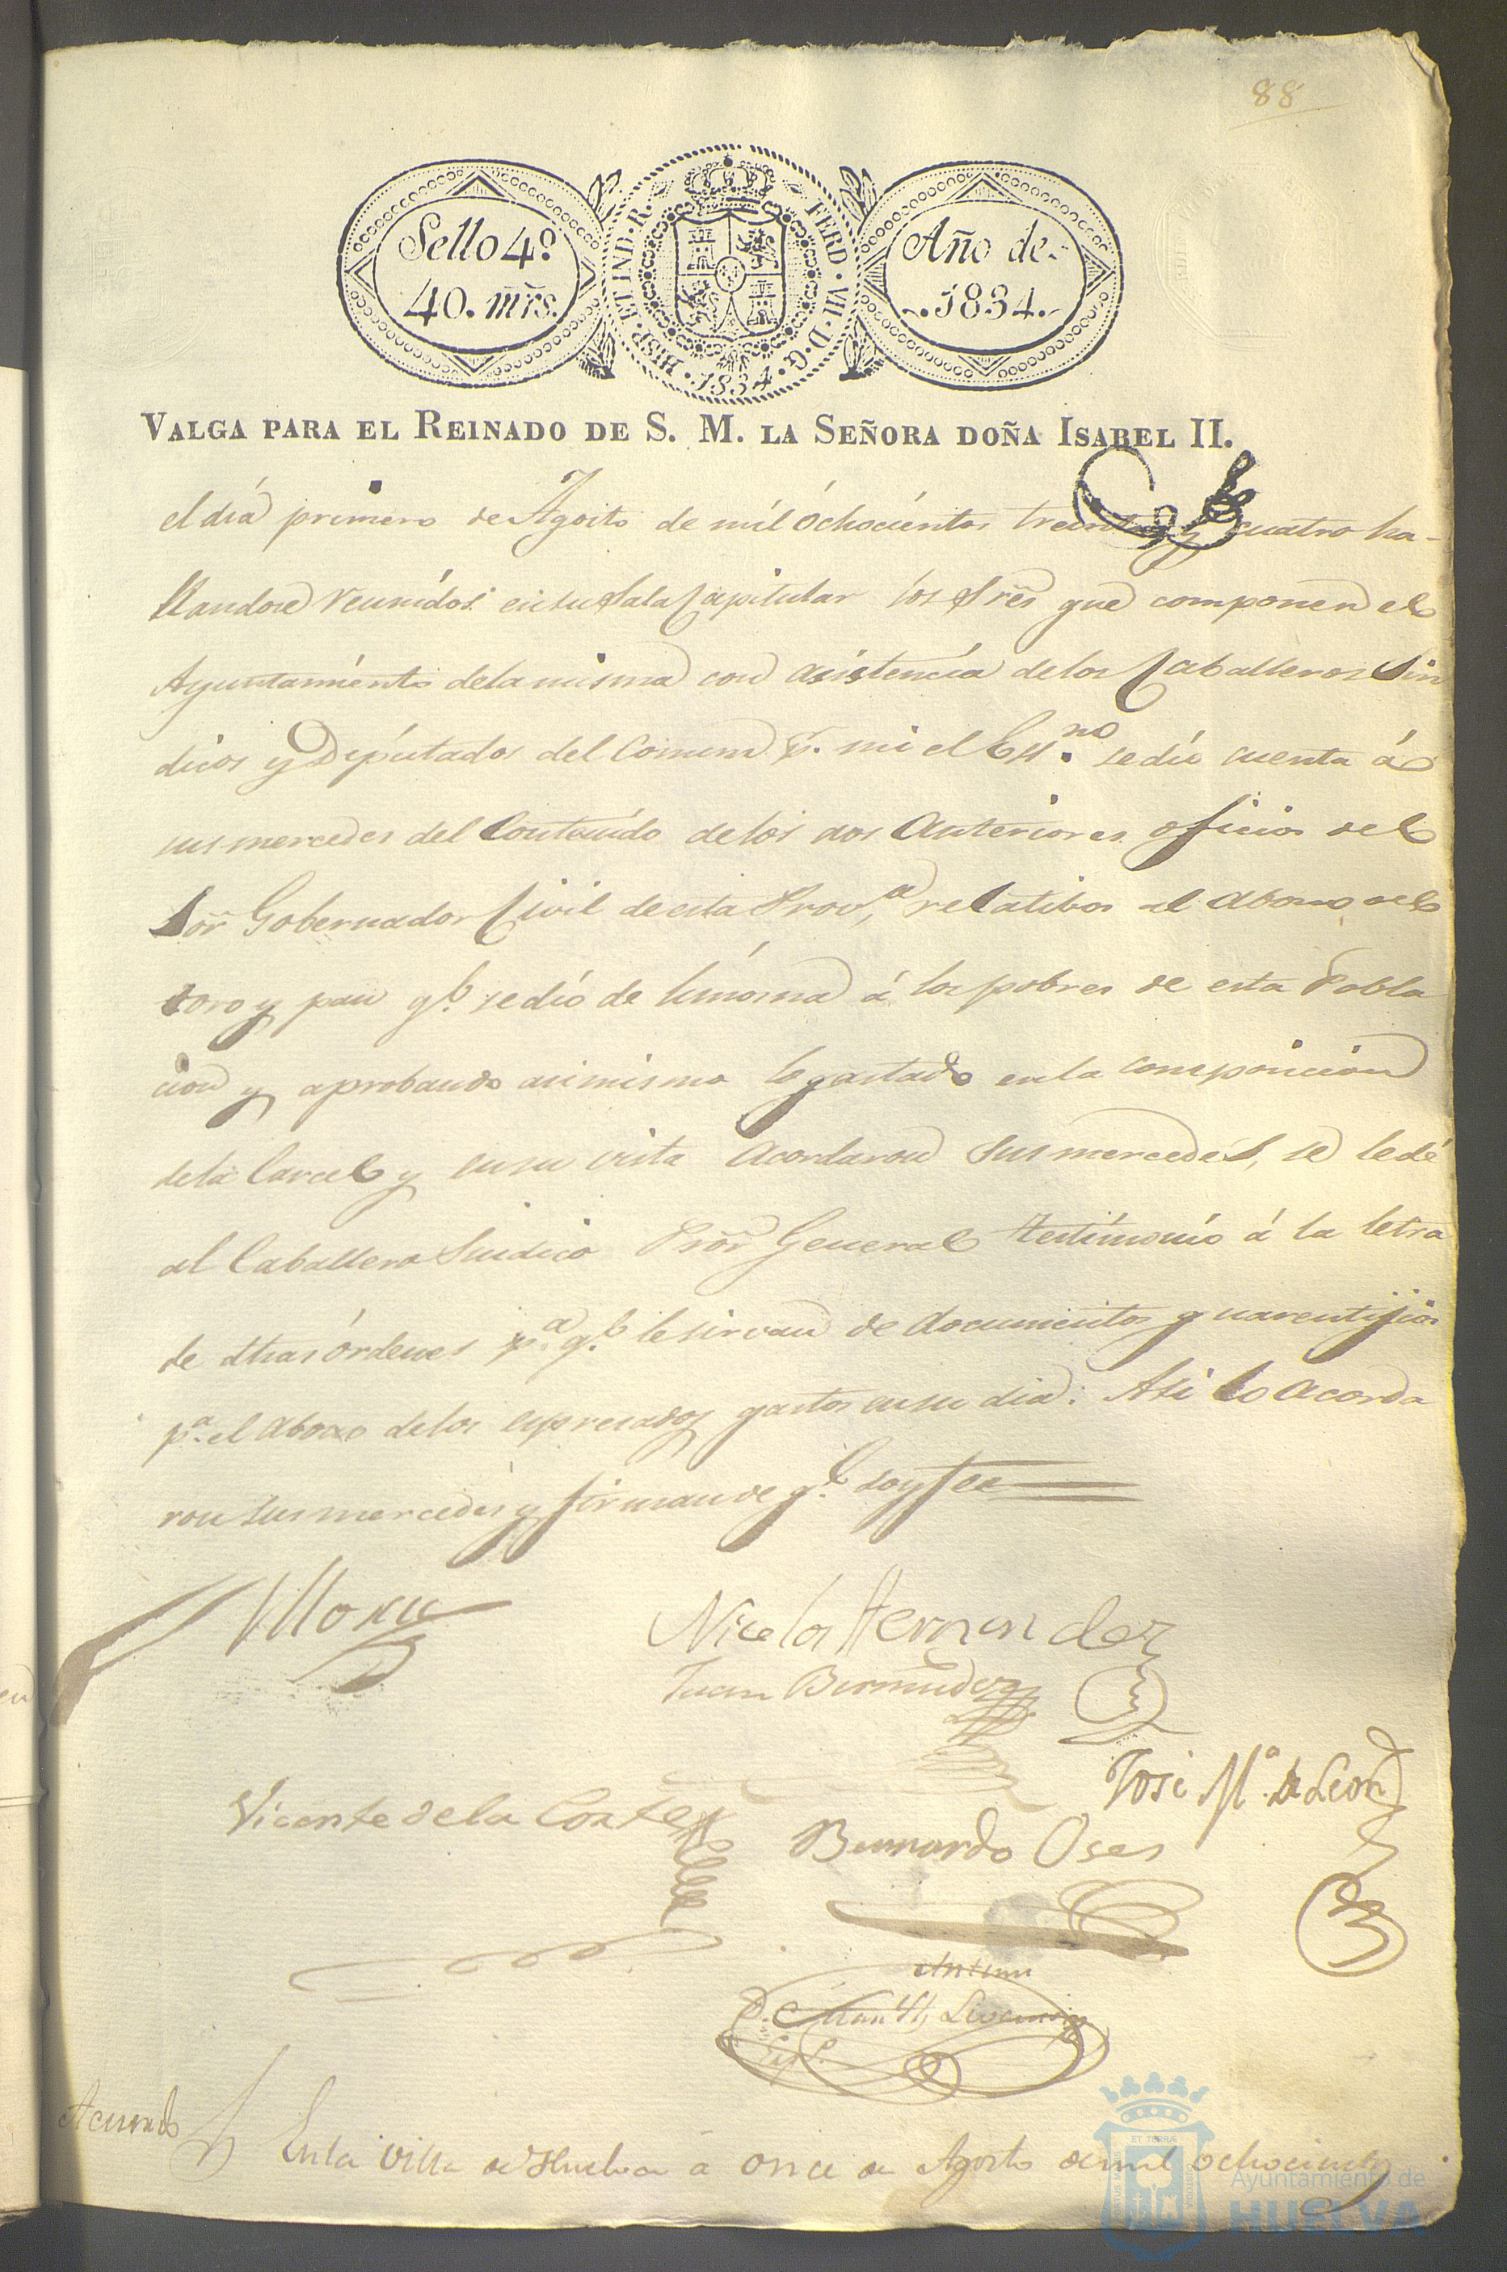 88
Sello 4º
40. mrs.
HISP. ET IND. R. FERD. VII. D. G. 1834.
Año de
1834.
VALGA PARA EL REINADO DE S. M. LA SEÑORA DOÑA ISABEL II.
el día primero de Agosto de mil ochocientos treinta y cuatro ha-
llandose reunidos en su Sala Capitular los Sres que componen el
Ayuntamiento de la misma con asistencia de los Caballeros Sin
dicos y Diputados del Comun p. mi el Essno se dio cuenta á
sus mercedes del contenido de los dos anteriores oficios del
Sor Gobernador Civil de esta Prova relatibos al abono del
toro y pan q.e se dió de limosna á los pobres de esta Pobla
cion y aprobando asimismo lo gastado en la composicion
de la Carcel y en su vista acordaron sus mercedes, se le dé
al Caballero Sindico Pror General testimonio á la letra
de dhas órdenes pa q.e le sirvan de documentos guarentijios
pa el abono de los espresados gastos en su dia: Asi lo acorda
ron sus mercedes y firman de q.e doy fee
Nicolas Hernandez
Juan Bermudez
José Ma. de Leon
Vicente de la Corte
Bernardo Oses
Ante mi
Acuerdo
En la Villa de Huelva á once de Agosto de mil ochocientos
Ayuntamiento de
HUELVA